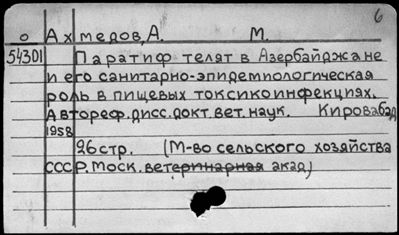 6
о Ахмедов, А. М.
54301 Паратиф телят в Азербайджане
и его санитарно-эпидемиологическая
роль в пищевых токсикоинфекциях.
Автореф. дисс. докт. вет. наук. Кировабад
1958
26 стр. (М-во сельского хозяйства
СССР. Моск. ветеринарная акад)